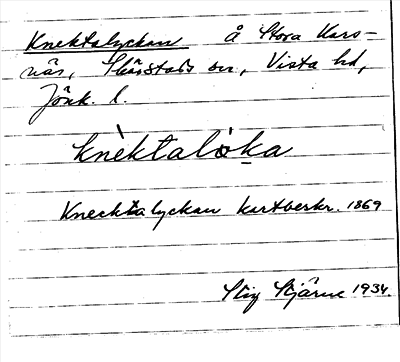 Knektalyckan å Stora Kors-
näs, Skärstads sn, Vista hd,
Jönk. l.
knèktalo̍ka
Knecktalyckan kartbeskr. 1869
Stig Stjärne 1934.